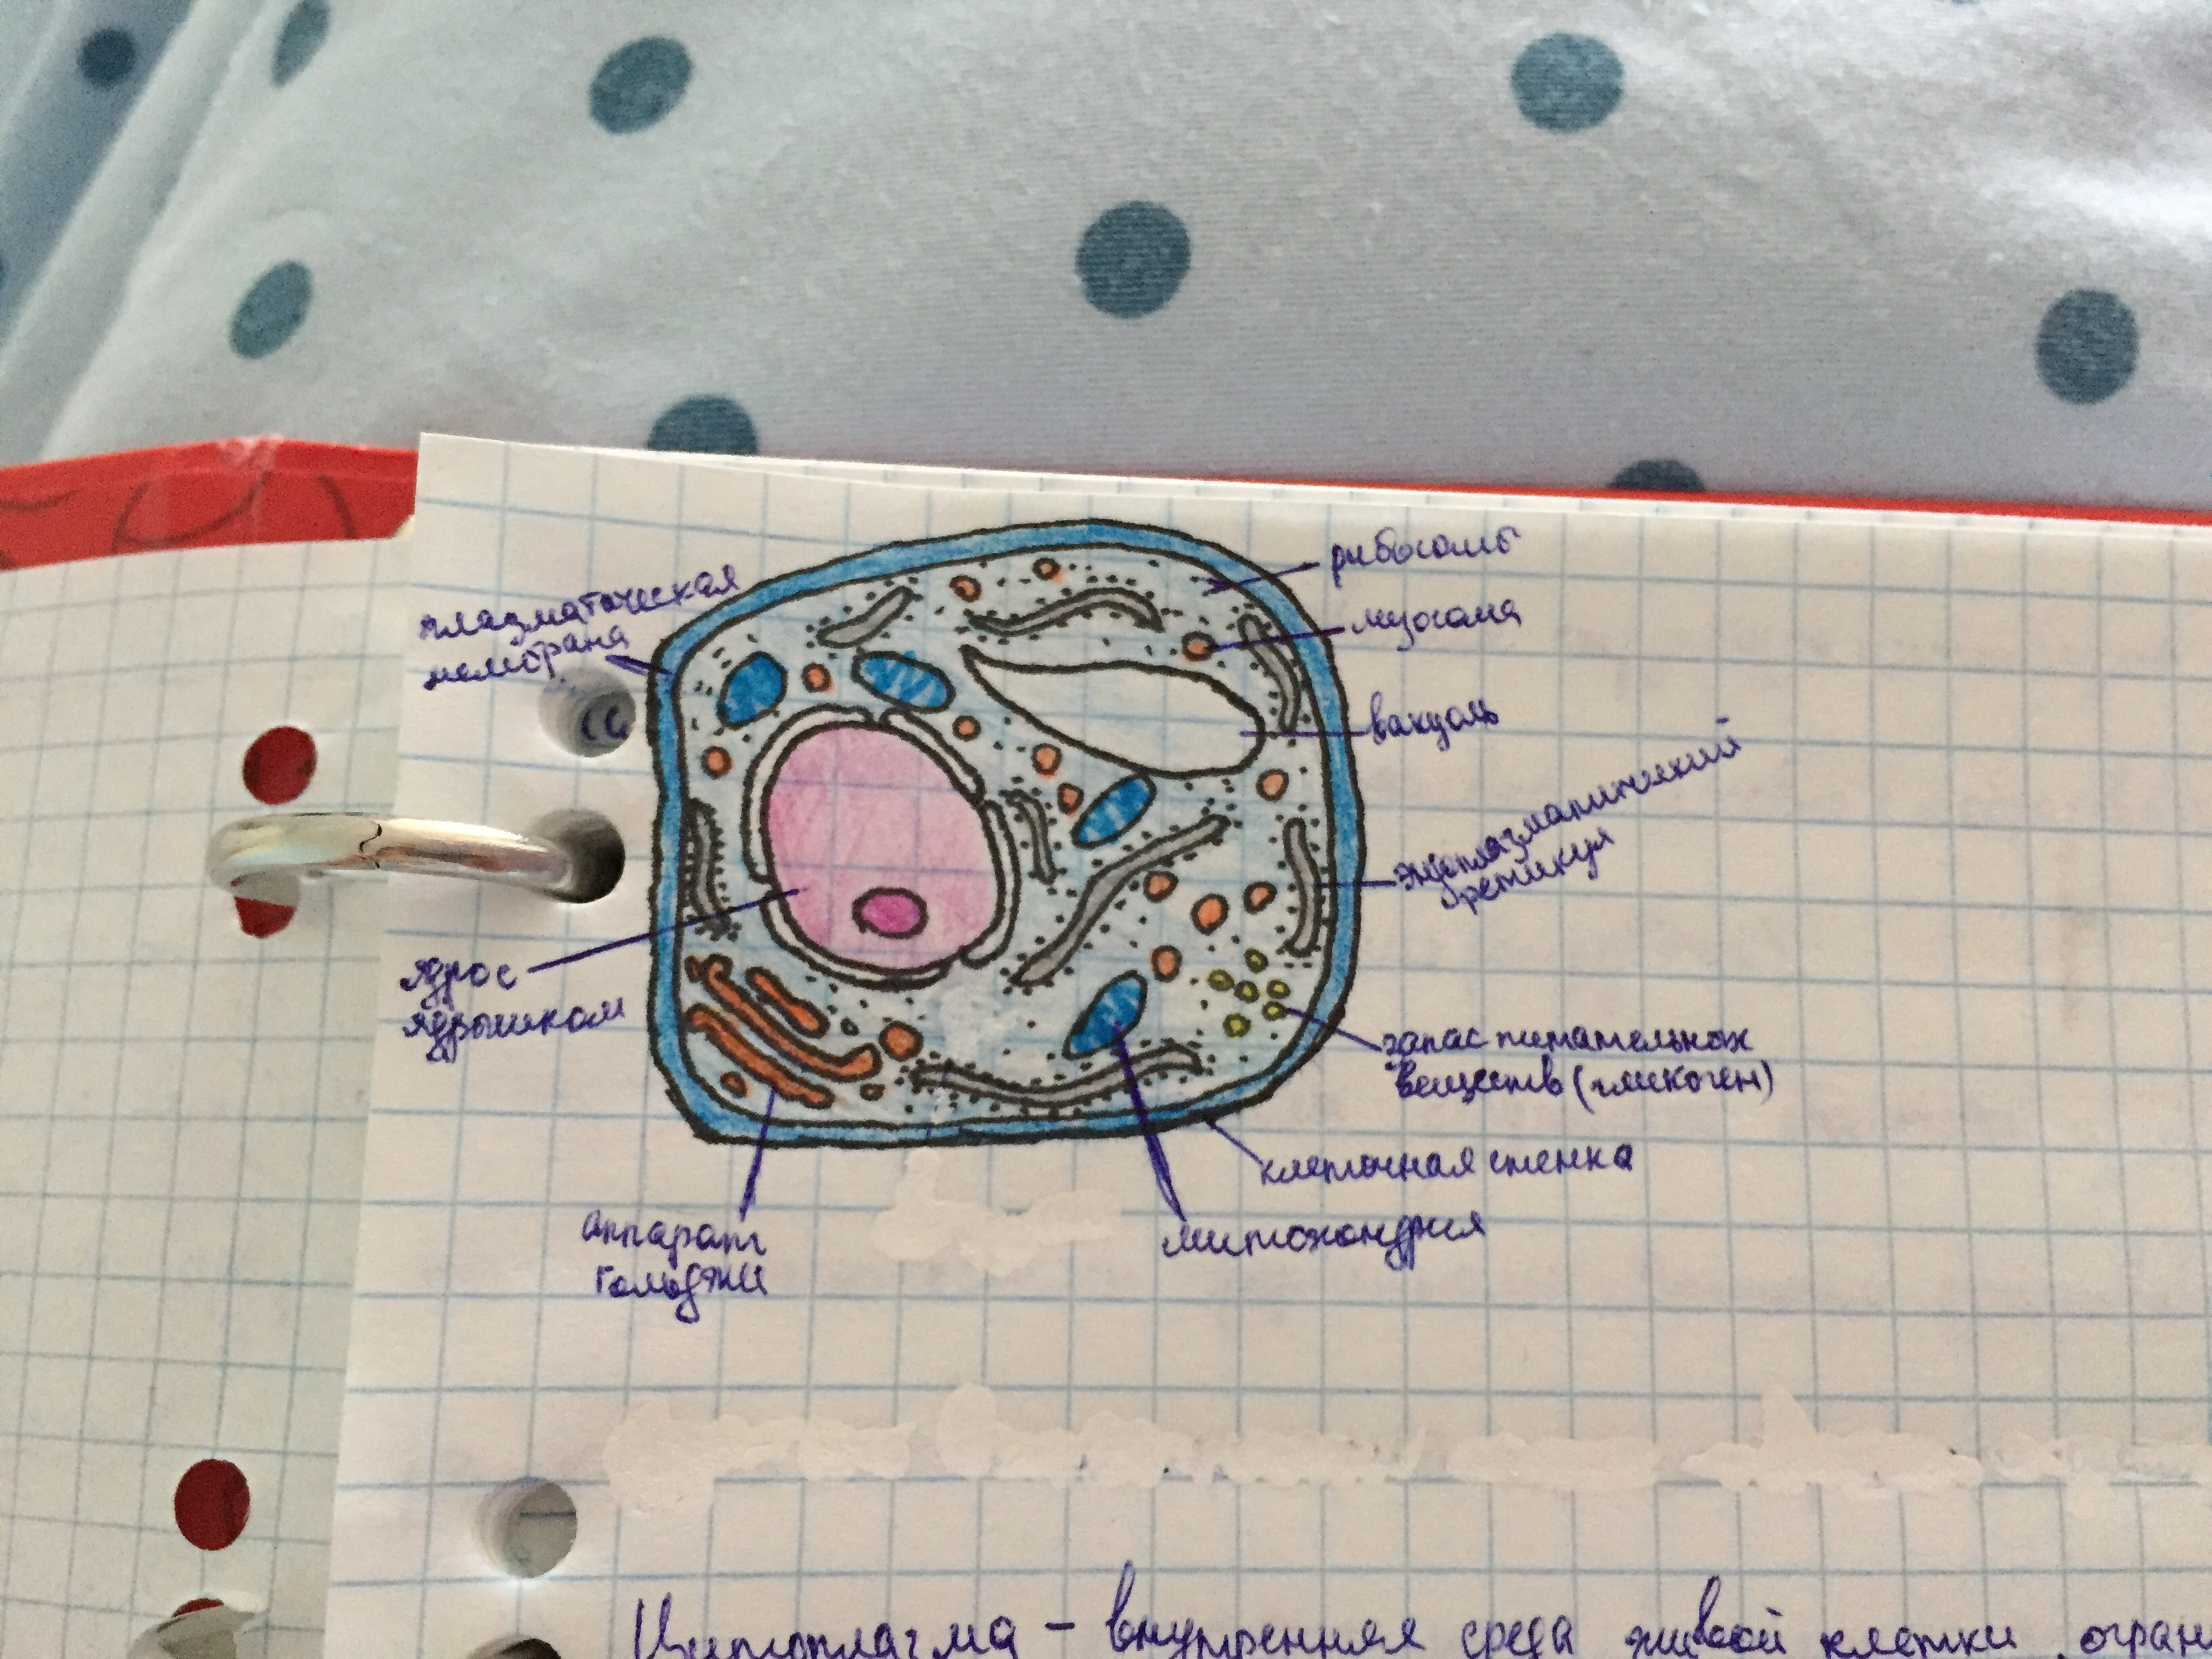 плазматическая
мембрана
рибосомы
лизосома
вакуоль
эндоплазматический
ретикул
ядро с
ядрышком
запас питательных
веществ (гликоген)
клеточная стенка
митохондрия
аппарат
Гольджи
Цитоплазма – внутренняя среда живой клетки, огран